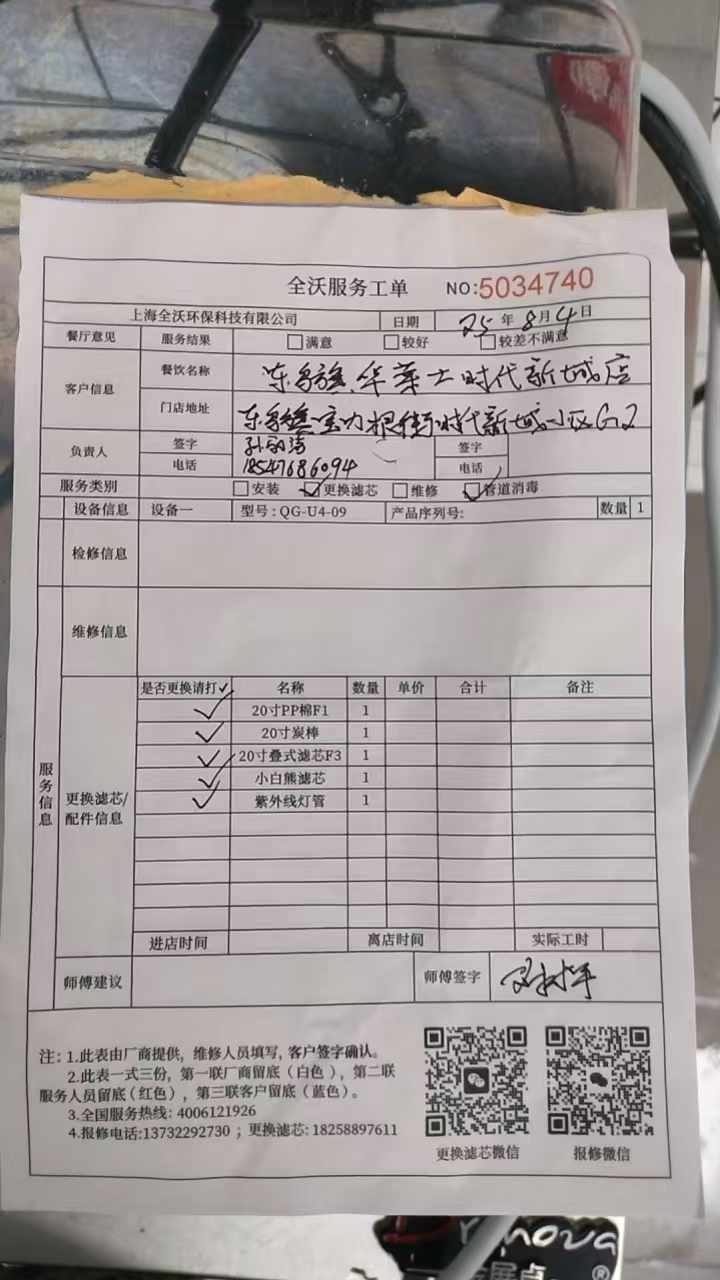 全沃服务工单 NO:5034740
上海全沃环保科技有限公司 日期 25年8月4日
餐厅意见 服务结果 满意 较好 较差不满意
客户信息 餐饮名称 东乌旗华莱士时代新城店
门店地址 东乌旗宝力根街时代新城小区G2
负责人 签字 签字
电话 18547686094 电话
服务类别 安装 ✓更换滤芯 维修 ✓管道消毒
设备信息 设备一 型号:QG-U4-09 产品序列号: 数量 1
检修信息
维修信息
服务信息
更换滤芯/配件信息
是否更换请打✓ 名称 数量 单价 合计 备注
✓ 20寸PP棉F1 1
✓ 20寸炭棒 1
✓ 20寸叠式滤芯F3 1
✓ 小白熊滤芯 1
✓ 紫外线灯管 1
进店时间 离店时间 实际工时
师傅建议 师傅签字
注:1.此表由厂商提供,维修人员填写,客户签字确认。
2.此表一式三份,第一联厂商留底(白色),第二联
服务人员留底(红色),第三联客户留底(蓝色)。
3.全国服务热线:4006121926
4.报修电话:13732292730;更换滤芯:18258897611
更换滤芯微信 报修微信